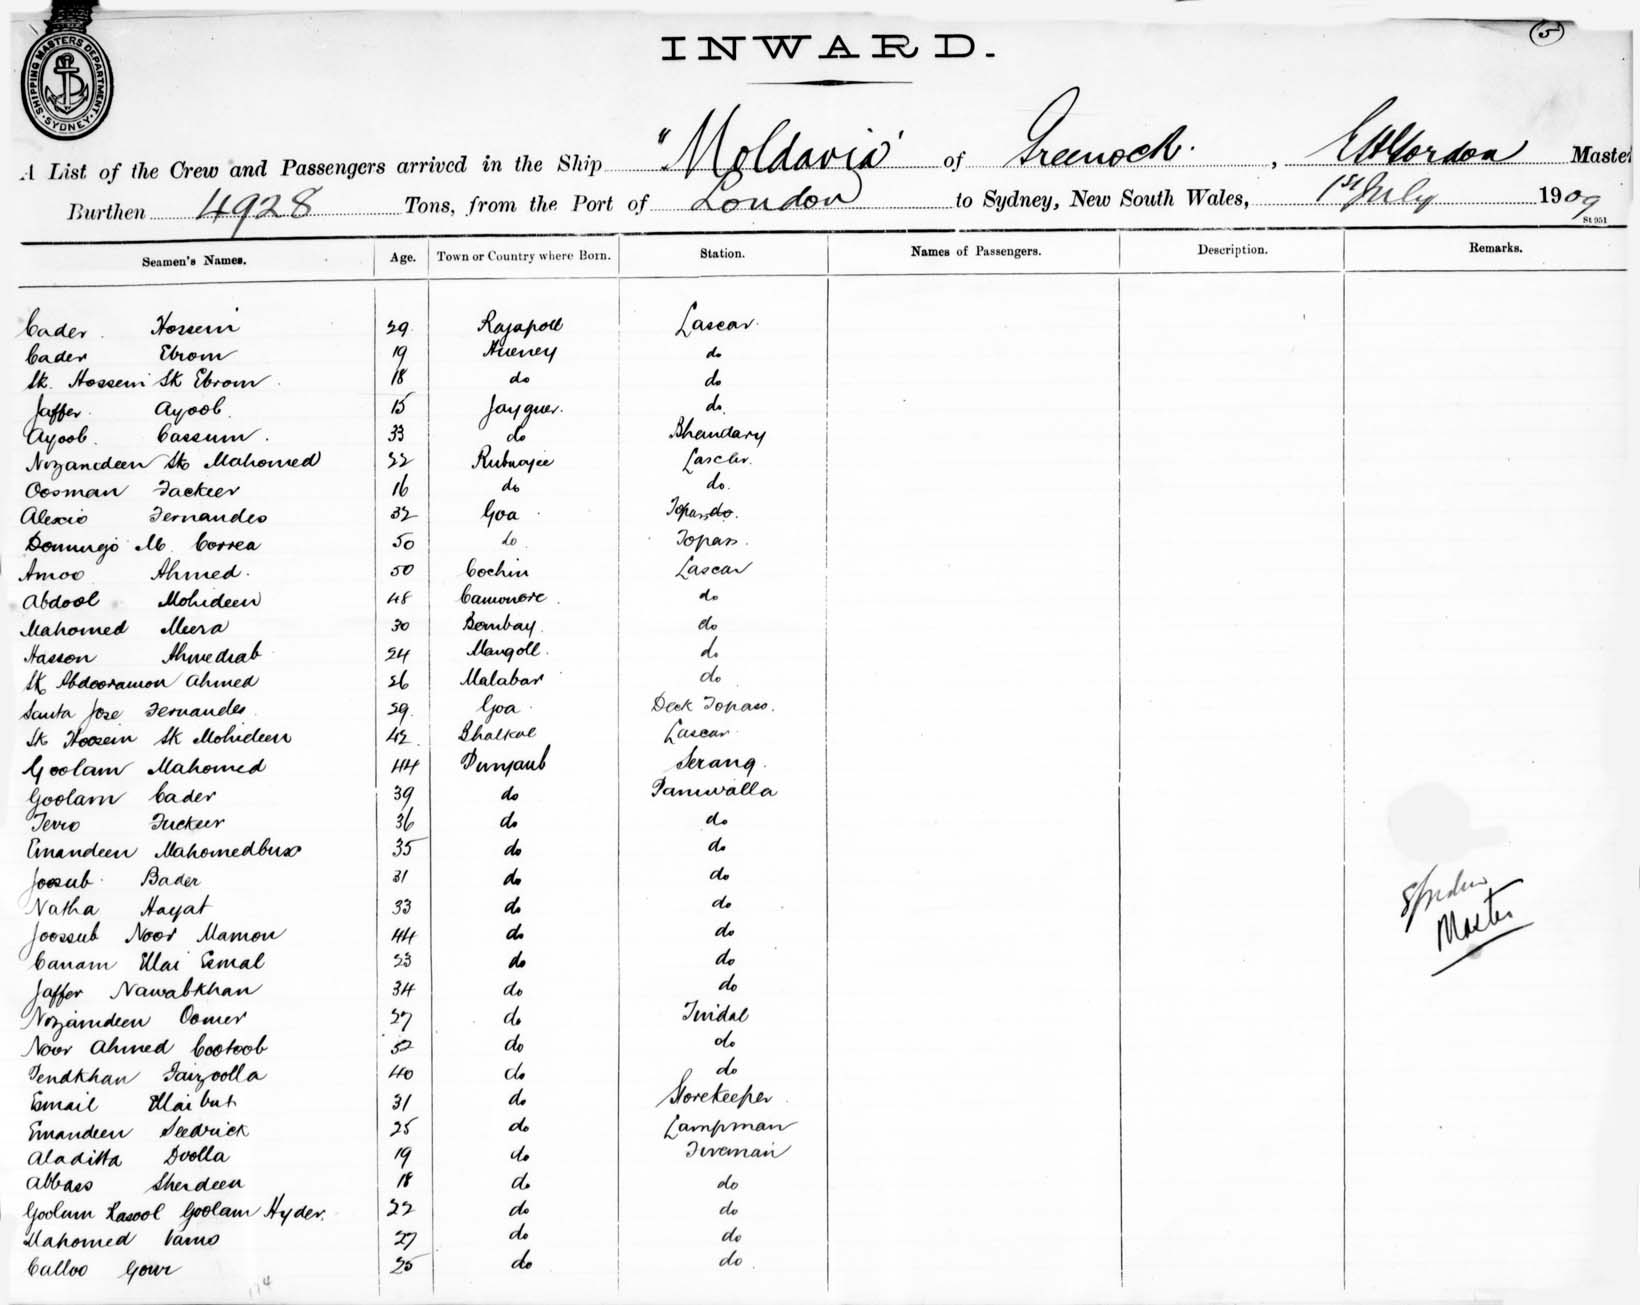 5
SHIPPING MASTERS DEPARTMENT. SYDNEY.
INWARD.
A List of the Crew and Passengers arrived in the Ship "Moldavia" of Greenock. , E H Gordon Master
Burthen 4928 Tons, from the Port of London to Sydney, New South Wales, 1st July 1909
St 951
Seamen's Names. Age. Town or Country where Born. Station. Names of Passengers. Description. Remarks.
Cader Hossein 29 Rajapoll Lascar.
Cader Ebrom 19 do
Sk. Hossein Sk Ebrom 18 do do
Jaffer Ayoob 15 Jayguer. do
Ayoob Cassum. 33 do Bhandary
Nizamdeen Sk Mahomed 22 Lascar.
Oosman Fackeer 16 do do.
Alexio Fernandes 32 Goa Topas do.
Domingo M. Correa 50 do Topas.
Amoo Ahmed. 50 Cochin Lascar
Abdool Mohideen 48 Camonore do
Mahomed Meera 30 Bombay do
Hasson Ahmedsab 24 Mangoll. do
Sk Abdooramon Ahmed 26 Malabar do
Santa Jose Fernandes 29 Goa Deck Topass.
Sk Hossein Sk Mohideen 42 Bhalkal Lascar
Goolam Mahomed 44 Punjaub Serang.
Goolam Cader 39 do Paniwalla
Ferro Fuckeer 36 do do
Emandeen Mahomedbux 35 do do
Joosub Bader 31 do do
Natha Hayat 33 do do
Joossub Noor Mamon 44 do do
Canam Ellai Esmal 23 do do
Jaffer Nawabkhan 34 do do
Nizamdeen Oomer 27 do Tindal
Noor Ahmed Cootoob 32 do do
Fendkhan Faizoolla 40 do do
Esmail Ellai but 31 do Storekeeper
Emandeen Seedrick 25 do Lampman
Aladitta Doolla 19 do Fireman
Abbass Sherdeen 18 do do
Goolum Rasool Goolam Hyder. 22 do do
Mahomed Vamo 27 do do
Calloo Gour 25 do do
Master